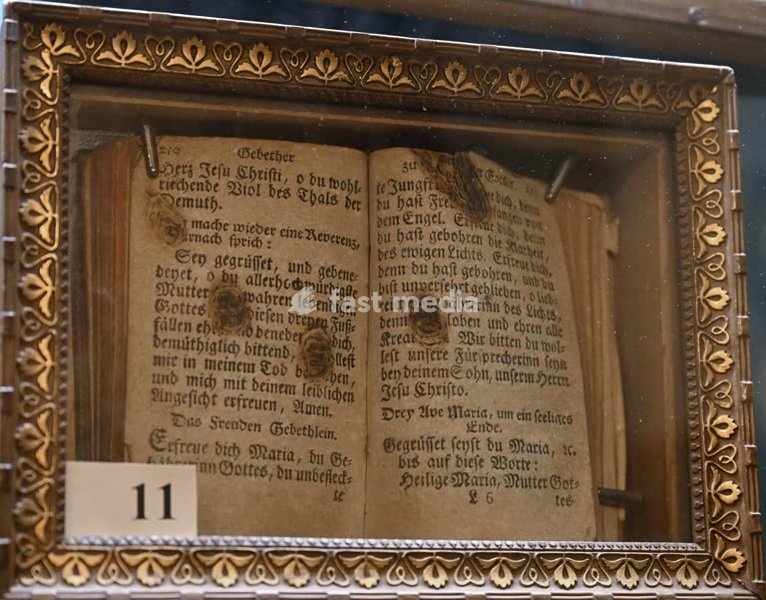 290
Gebether
Herz Jesu Christi, o du wohl-
riechende Viol des Thals der
Demuth.
mache wieder eine Reverenz,
darnach sprich:
Sey gegrüsset, und gebene-
deyet, o du allerhochwürdigste
Mutter wahren
Gottes diesen dreyen Fuß-
fällen und benede dich,
demüthiglich bittend,
mir in meinem Tod
und mich mit deinem leiblichen
Angesicht erfreuen, Amen.
Das Freuden Gebethlein.
Erfreue dich Maria, du Ge-
bährerinn Gottes, du unbefleck-
te
11
zu Gottes.
te Jungfr dich, denn
du hast Freu empfangen von
dem Engel. Erfreue dich, denn
du hast gebohren die Klarheit
des ewigen Lichts. Erfreue dich,
denn du hast gebohren, und du
bist unversehrt geblieben, o
des Lichts,
denn loben und ehren alle
Krea Wir bitten du wol-
lest unsere Fürsprecherinn seyn
bey deinem Sohn, unserm Herrn
Jesu Christo.
Drey Ave Maria, um ein seeliges
Ende.
Gegrüsset seyst du Maria, ꝛc.
bis auf diese Worte:
Heilige Maria, Mutter Got-
L 6 tes
fast media